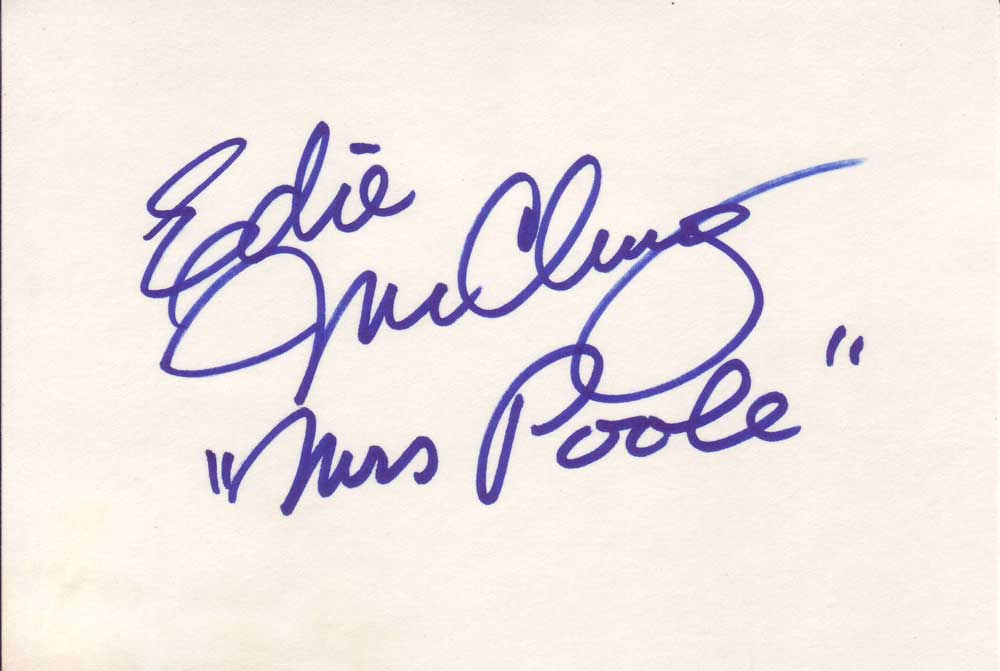 Edie McClurg
"Mrs Poole"